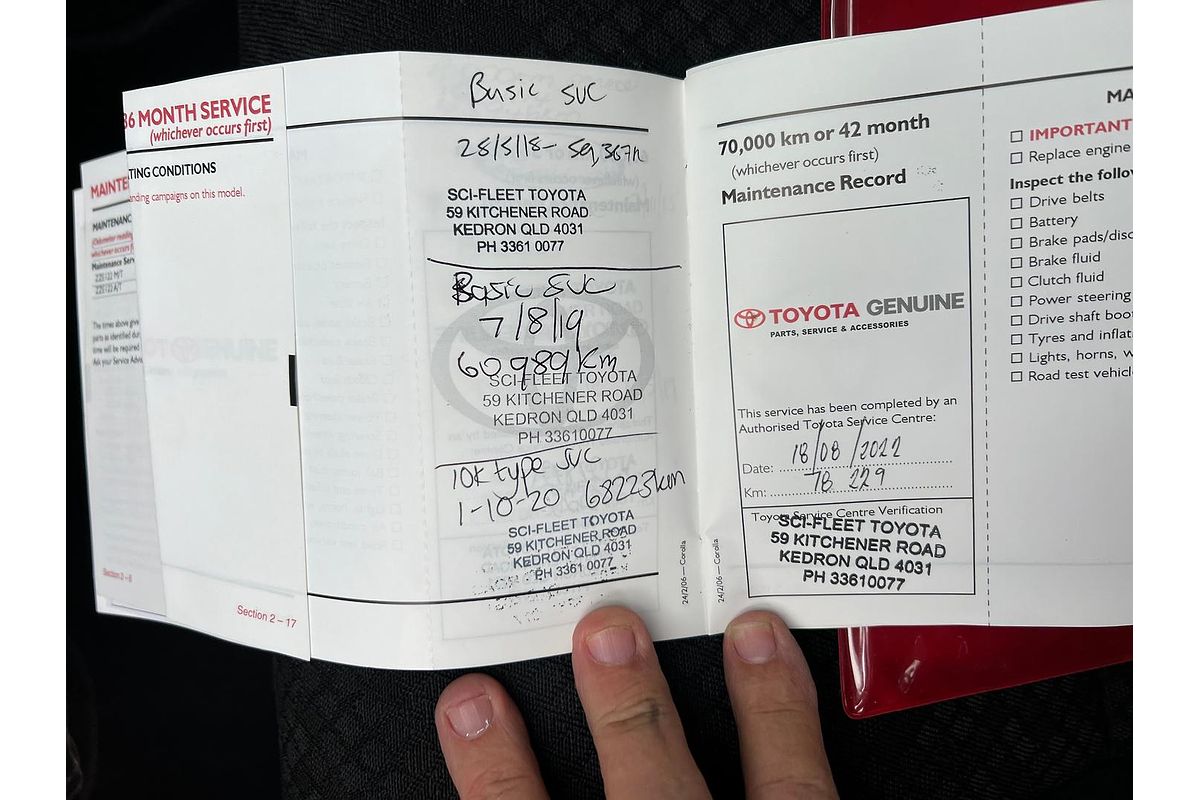 36 MONTH SERVICE
(whichever occurs first)
TING CONDITIONS
anding campaigns on this model.
MAINTE
MAINTENANC
(Odometer readin
whichever occurs fi
Maintenance Serv
ZZE122 M/T
ZZE122 A/T
The times above give
parts as identified dur
time will be required
Ask your Service Advis
Section 2 – 6
Section 2 – 17
Basic SVC
28/5/18 - 59,367k
SCI-FLEET TOYOTA
59 KITCHENER ROAD
KEDRON QLD 4031
PH 3361 0077
Basic SVC
7/8/19
60989 km
SCI-FLEET TOYOTA
59 KITCHENER ROAD
KEDRON QLD 4031
PH 33610077
10K type SVC
1-10-20 68223km
SCI-FLEET TOYOTA
59 KITCHENER ROAD
KEDRON QLD 4031
PH 3361 0077
24/2/06 — Corolla
24/2/06 — Corolla
70,000 km or 42 month
(whichever occurs first)
Maintenance Record
TOYOTA GENUINE
PARTS, SERVICE & ACCESSORIES
This service has been completed by an
Authorised Toyota Service Centre:
Date: 18/08/2022
Km: 78 229
Toyota Service Centre Verification
SCI-FLEET TOYOTA
59 KITCHENER ROAD
KEDRON QLD 4031
PH 33610077
MA
IMPORTANT
Replace engine
Inspect the follow
Drive belts
Battery
Brake pads/disc
Brake fluid
Clutch fluid
Power steering
Drive shaft boo
Tyres and inflat
Lights, horns, w
Road test vehicl